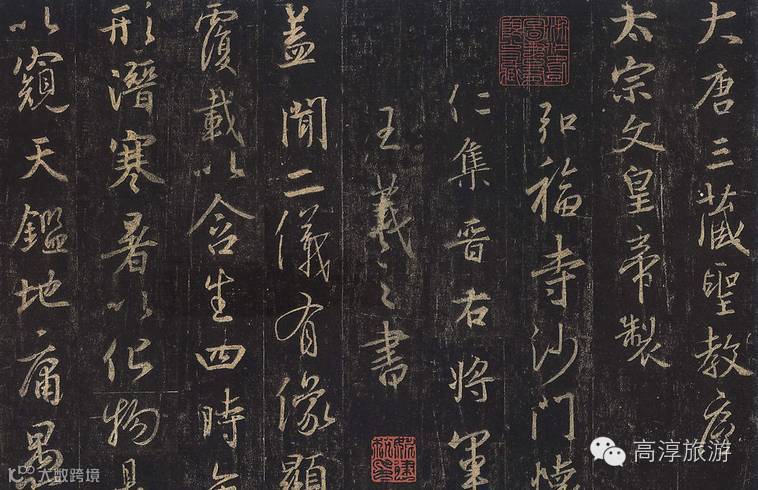 大唐三藏聖教序
太宗文皇帝製
弘福寺沙門懷
仁集晉右將軍
王羲之書
蓋聞二儀有像顯
覆載以含生四時無
形潛寒暑以化物是
以窺天鑑地庸愚
高淳旅游
大数跨境